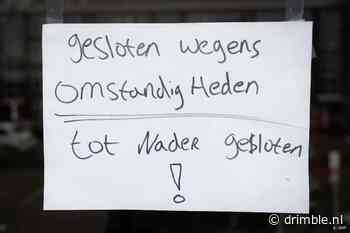 gesloten wegens
omstandigHeden
tot Nader gesloten
!
drimble.nl